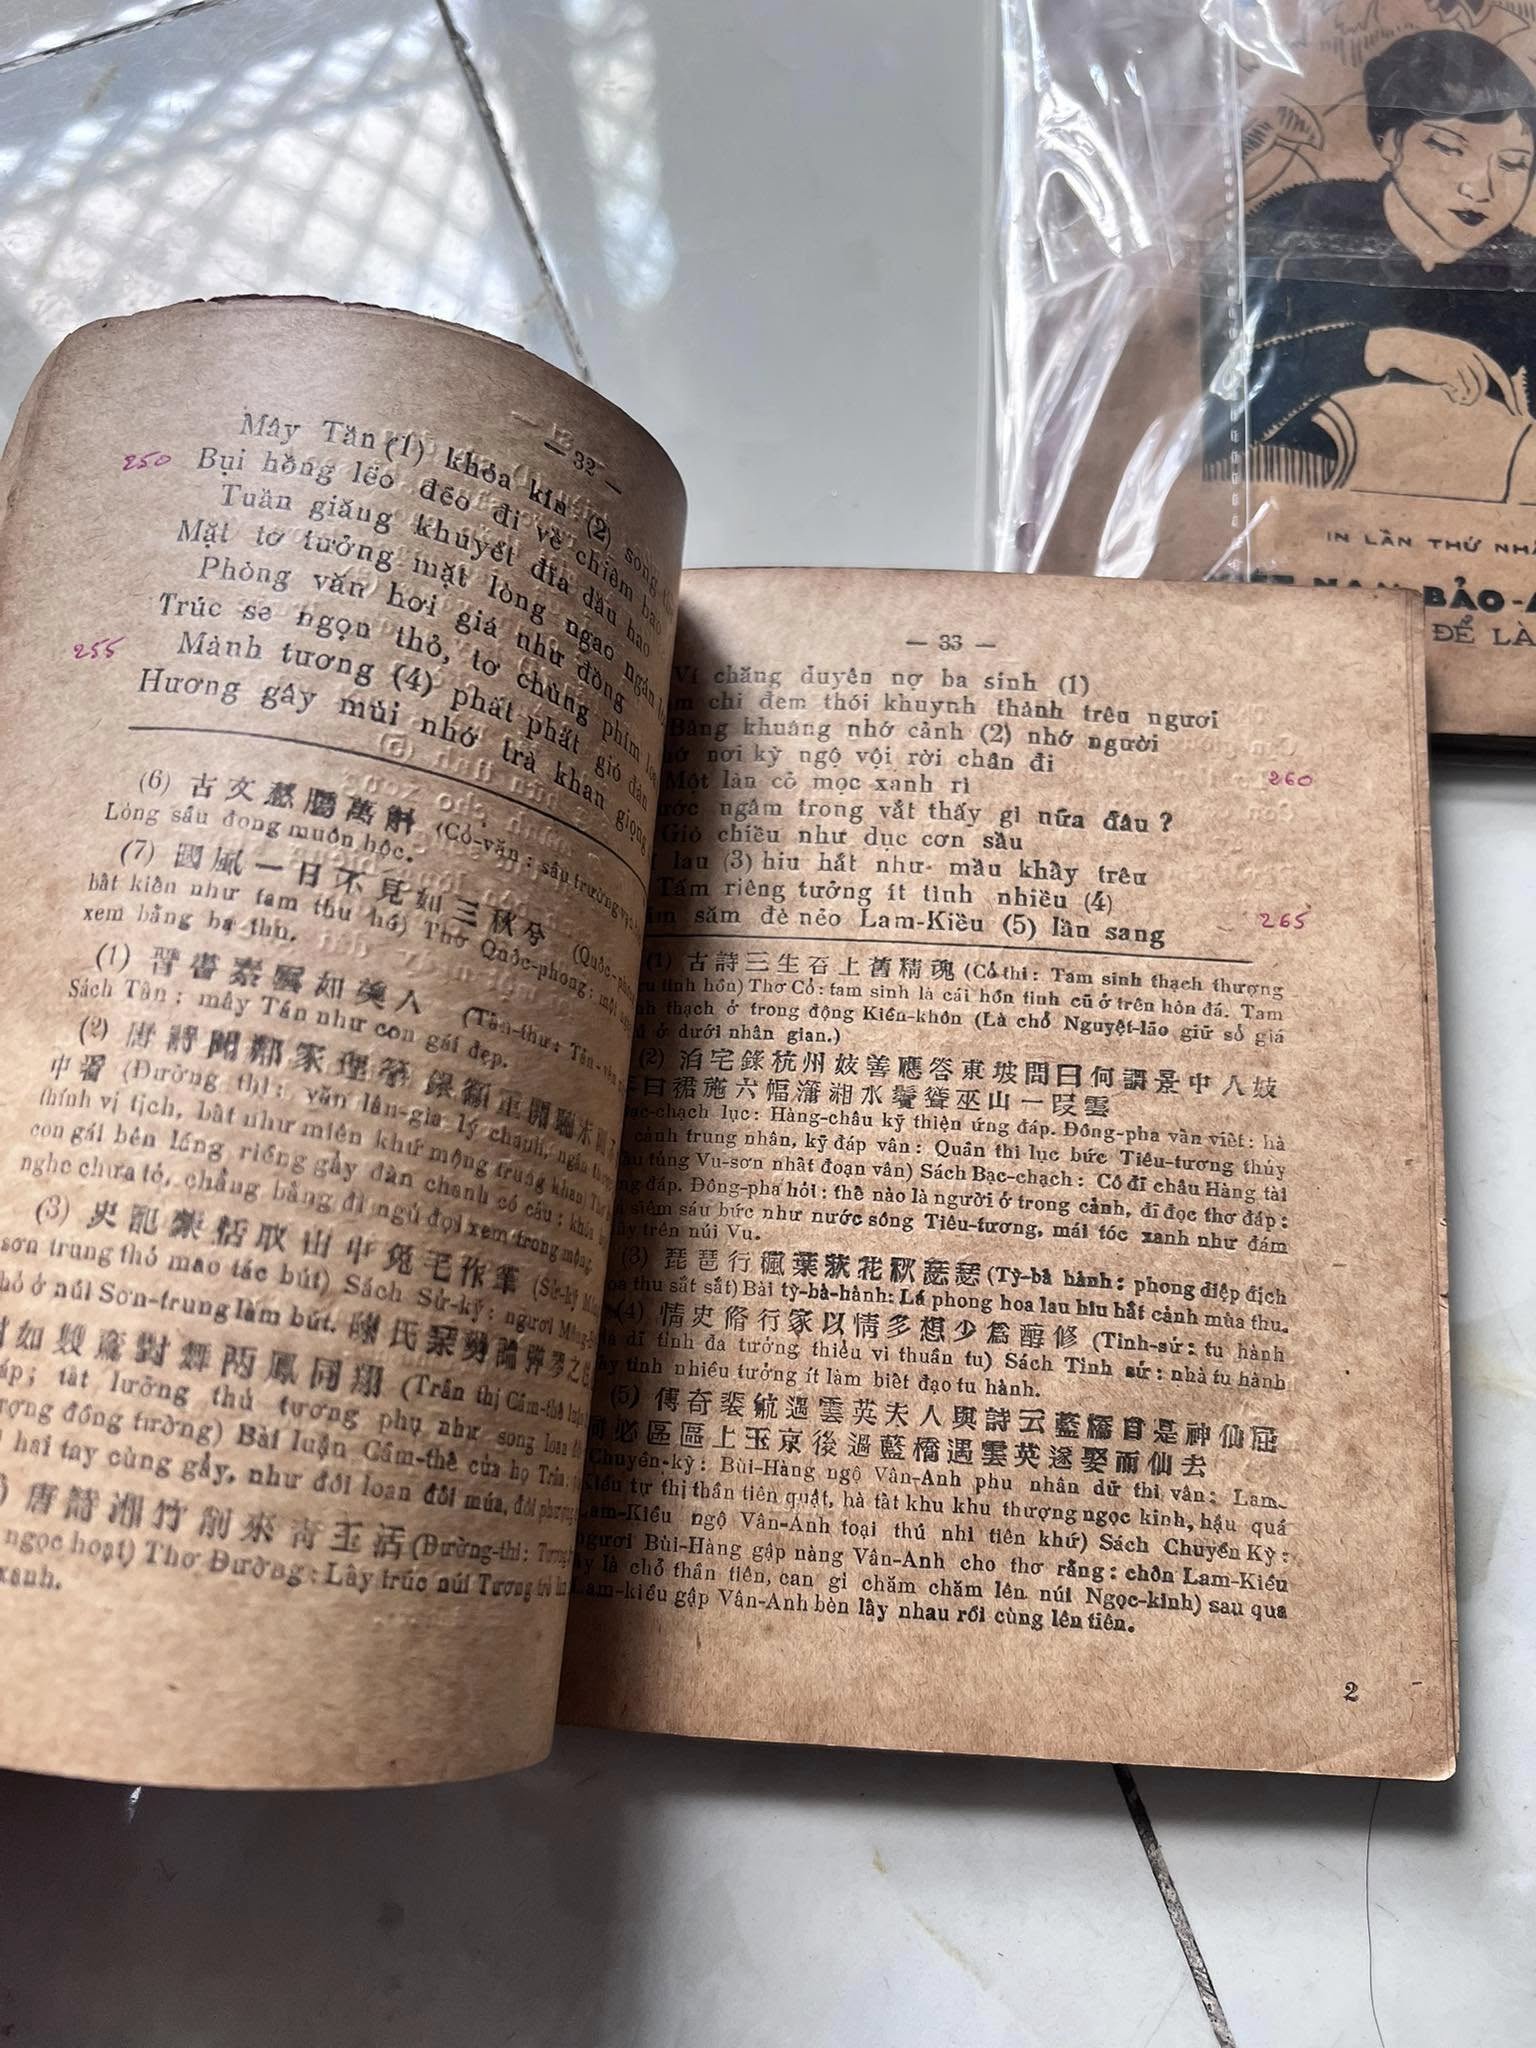 — 32 —
Mây Tần (1) khóa kín (2) song
250 Bụi hồng lẽo đẽo đi về chiêm bao
Tuần giăng khuyết đĩa dầu hao
Mặt tơ tưởng mặt lòng ngao ngán
Phòng văn hơi giá như đồng
Trúc se ngọn thỏ, tơ chùng phím
255 Mành tương (4) phất phất gió đàn
Hương gây mùi nhớ trà khan giọng
(6) 古文愁腸萬斛 (Cổ-văn : sầu trường vạn
Lòng sầu đong muôn hộc.
(7) 國風一日不見如三秋兮 (Quốc-phong
bất kiến như tam thu hề) Thơ Quốc-phong : một
xem bằng ba thu.
(1) 晉書秦 如美人 (Tấn-thư : Tần
Sách Tấn : mây Tần như con gái đẹp.
(2) 唐詩聞鄰家理箏
中看 (Đường thi : văn lân-gia lý
thính vị tịch, bất như miên khứ mộng trung khan) Thơ
con gái bên láng riềng gẩy đàn
nghe chưa tỏ, chẳng bằng đi ngủ đợi xem trong mộng
(3) 史記蒙恬取山中兔毛作筆 (Sử-ký
sơn trung thỏ mao tác bút) Sách Sử-ký : người
ở núi Sơn-trung làm bút. 陳氏琴勢論彈琴之
如雙鸞對舞兩鳳同翔 (Trần thị Cầm-thế
tất lưỡng thủ tương phụ như song loan
đồng tường) Bài luận Cầm-thế của họ Trần :
hai tay cùng gẩy, như đôi loan đối múa, đôi
唐詩湘竹削來青玉活 (Đường-thi : Tương
ngọc hoạt) Thơ Đường : Lấy trúc núi Tương
xanh.
— 33 —
Ví chăng duyên nợ ba sinh (1)
chi đem thói khuynh thành trêu ngươi
Bâng khuâng nhớ cảnh (2) nhớ người
nơi kỳ ngộ vội rời chân đi
Một làn cỏ mọc xanh rì 260
ngâm trong vắt thấy gì nữa đâu ?
Gió chiều như dục cơn sầu
lau (3) hiu hắt như mầu khẩy trêu
Tấm riêng tưởng ít tình nhiều (4)
săm đè nẻo Lam-Kiều (5) lần sang 265
(1) 古詩三生石上舊精魂 (Cổ thi : Tam sinh thạch thượng
tinh hồn) Thơ Cổ : tam sinh là cái hồn tinh cũ ở trên hòn đá. Tam
thạch ở trong động Kiền-khôn (Là chỗ Nguyệt-lão giữ sổ giá
ở dưới nhân gian.)
(2) 泊宅錄杭州妓善應答東坡問曰何謂景中人妓
曰裙施六幅瀟湘水鬢聳巫山一段雲
lục : Hàng-châu kỹ thiện ứng đáp. Đông-pha vấn viết : hà
cảnh trung nhân, kỹ đáp vân : Quần thi lục bức Tiêu-tương thủy
tủng Vu-sơn nhất đoạn vân) Sách Bạc-chạch : Cô đĩ châu Hàng tài
đáp. Đông-pha hỏi : thế nào là người ở trong cảnh, đĩ đọc thơ đáp :
siêm sáu bức như nước sông Tiêu-tương, mái tóc xanh như đám
trên núi Vu.
(3) 琵琶行楓葉荻花秋瑟瑟 (Tỳ-bà hành : phong diệp địch
hoa thu sắt sắt) Bài tỳ-bà-hành : Lá phong hoa lau hiu hắt cảnh mùa thu.
(4) 情史脩行家以情多想少爲醇修 (Tình-sử : tu hành
dĩ tình đa tưởng thiểu vi thuần tu) Sách Tình sử : nhà tu hành
tình nhiều tưởng ít làm biết đạo tu hành.
(5) 傳奇裴航遇雲英夫人與詩云藍橋自是神仙屈
何必區區上玉京後過藍橋遇雲英遂娶而仙去
Chuyền-kỳ : Bùi-Hàng ngộ Vân-Anh phu nhân dữ thi vân : Lam-
Kiều tự thị thần tiên quật, hà tất khu khu thượng ngọc kinh, hậu quá
Lam-Kiều ngộ Vân-Anh toại thú nhi tiên khứ) Sách Chuyền Kỳ :
người Bùi-Hàng gặp nàng Vân-Anh cho thơ rằng : chốn Lam-Kiều
là chỗ thần tiên, can gì chăm chăm lên núi Ngọc-kinh) sau qua
Lam-kiều gặp Vân-Anh bèn lấy nhau rồi cùng lên tiên.
2
IN LẦN THỨ
BẢO
ĐỂ LÀ